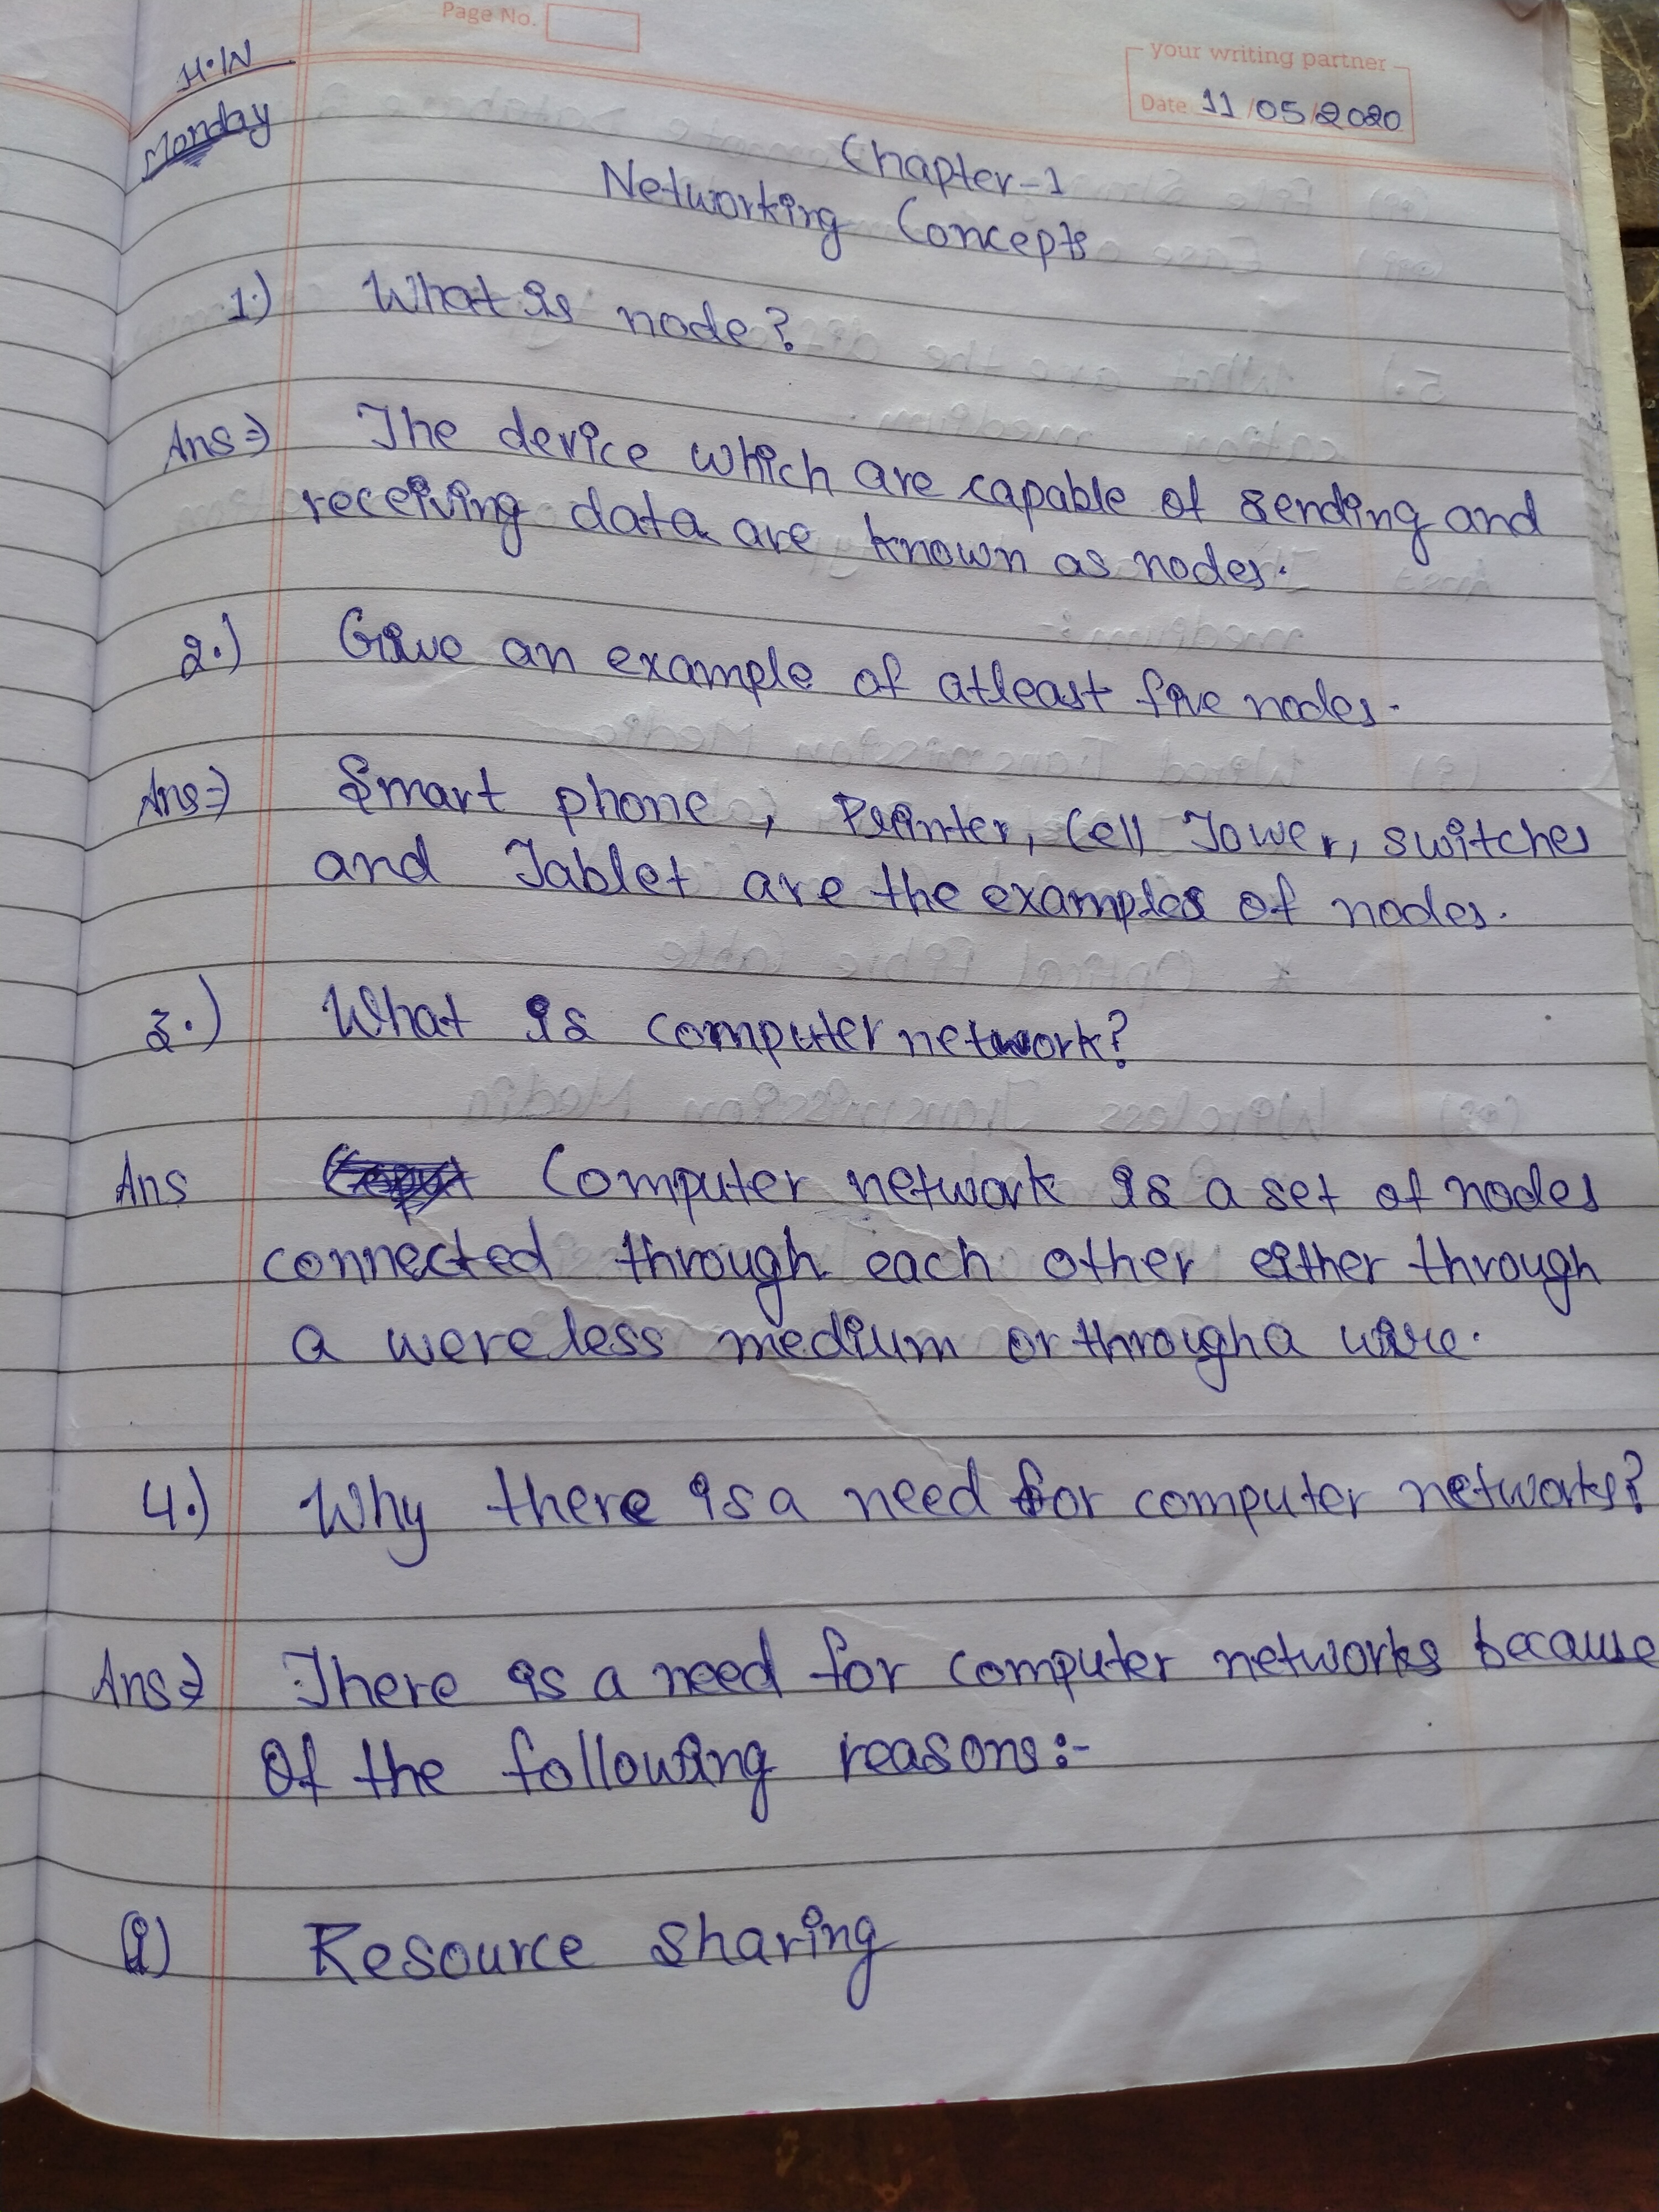 Page No.
your writing partner
H.W
Date 11/05/2020
Monday
Chapter-1
Networking Concepts
1.) What is node?
Ans⇒ The device which are capable of sending and
receiving data are known as nodes.
2.) Give an example of atleast five nodes.
Ans⇒ Smart phone, Printer, Cell Tower, switches
and Tablet are the examples of nodes.
3.) What is computer network?
Ans Computer network is a set of nodes
connected through each other either through
a wereless medium or through a wire.
4.) Why there is a need for computer networks?
Ans⇒ There is a need for computer networks because
Of the following reasons:-
(i) Resource sharing